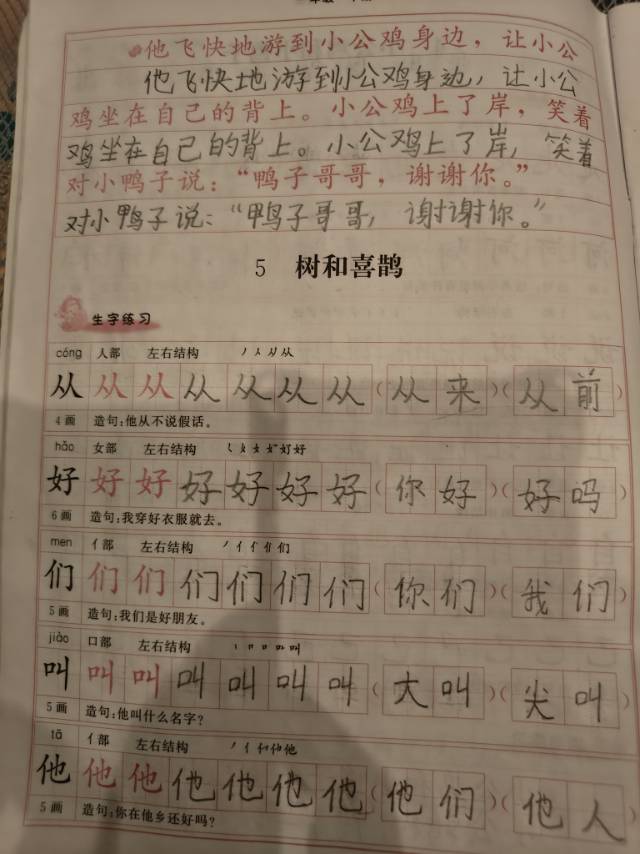 他飞快地游到小公鸡身边，让小公
他飞快地游到小公鸡身边，让小公
鸡坐在自己的背上。小公鸡上了岸，笑着
鸡坐在自己的背上。小公鸡上了岸，笑着
对小鸭子说：“鸭子哥哥，谢谢你。”
对小鸭子说：“鸭子哥哥，谢谢你。”
5 树和喜鹊
生字练习
cóng 人部 左右结构 丿 人 从 从
从 从 从 从 从 从 从 （从来）（从前）
4画 造句：他从不说假话。
hǎo 女部 左右结构
好 好 好 好 好 好 好 （你好）（好吗）
6画 造句：我穿好衣服就去。
men 亻部 左右结构
们 们 们 们 们 们 们 （你们）（我们）
5画 造句：我们是好朋友。
jiào 口部 左右结构
叫 叫 叫 叫 叫 叫 叫 （大叫）（尖叫）
5画 造句：他叫什么名字？
tā 亻部 左右结构
他 他 他 他 他 他 他 （他们）（他人）
5画 造句：你在他乡还好吗？